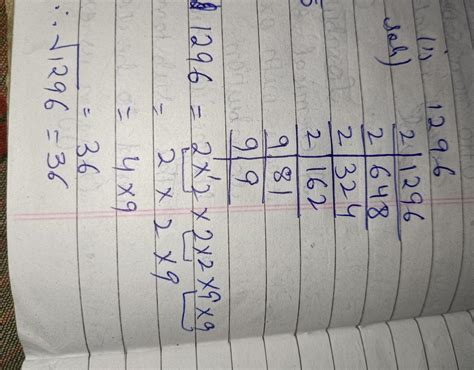 (i) 1296
2 | 1296
2 | 648
2 | 324
2 | 162
9 | 81
9 | 9
1296 = 2×2×2×2×9×9
= 2×2×9
= 4×9
= 36
∴ √1296 = 36